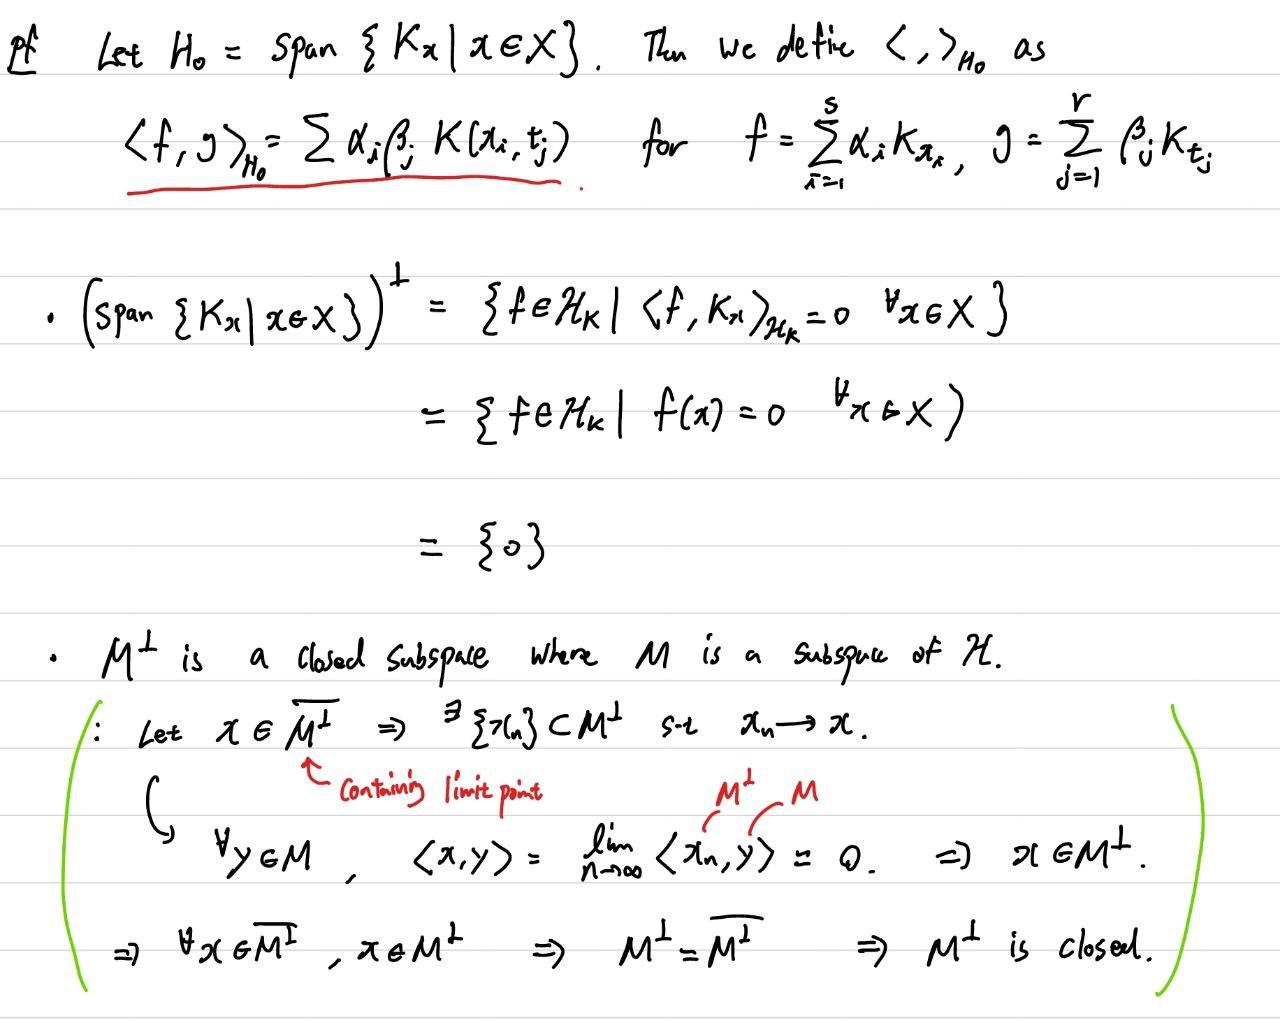 pf Let H₀ = span {Kₓ | x∈X}. Then we define <,>_H₀ as
<f,g>_H₀ = Σ αᵢβⱼ K(xᵢ,tⱼ) for f = Σ_{i=1}^{s} αᵢK_{xᵢ}, g = Σ_{j=1}^{r} βⱼK_{tⱼ}
· (span {Kₓ | x∈X})^⊥ = {f∈ℋ_K | <f,Kₓ>_{ℋ_K} = 0 ∀x∈X}
= {f∈ℋ_K | f(x) = 0 ∀x∈X)
= {0}
· M^⊥ is a closed subspace where M is a subspace of ℋ.
: Let x ∈ \overline{M^⊥} ⇒ ∃{xₙ} ⊂ M^⊥ s.t xₙ → x.
↑ containing limit point M^⊥ M
↳ ∀y∈M, <x,y> = lim_{n→∞} <xₙ,y> = 0. ⇒ x∈M^⊥.
⇒ ∀x∈\overline{M^⊥}, x∈M^⊥ ⇒ M^⊥ = \overline{M^⊥} ⇒ M^⊥ is closed.